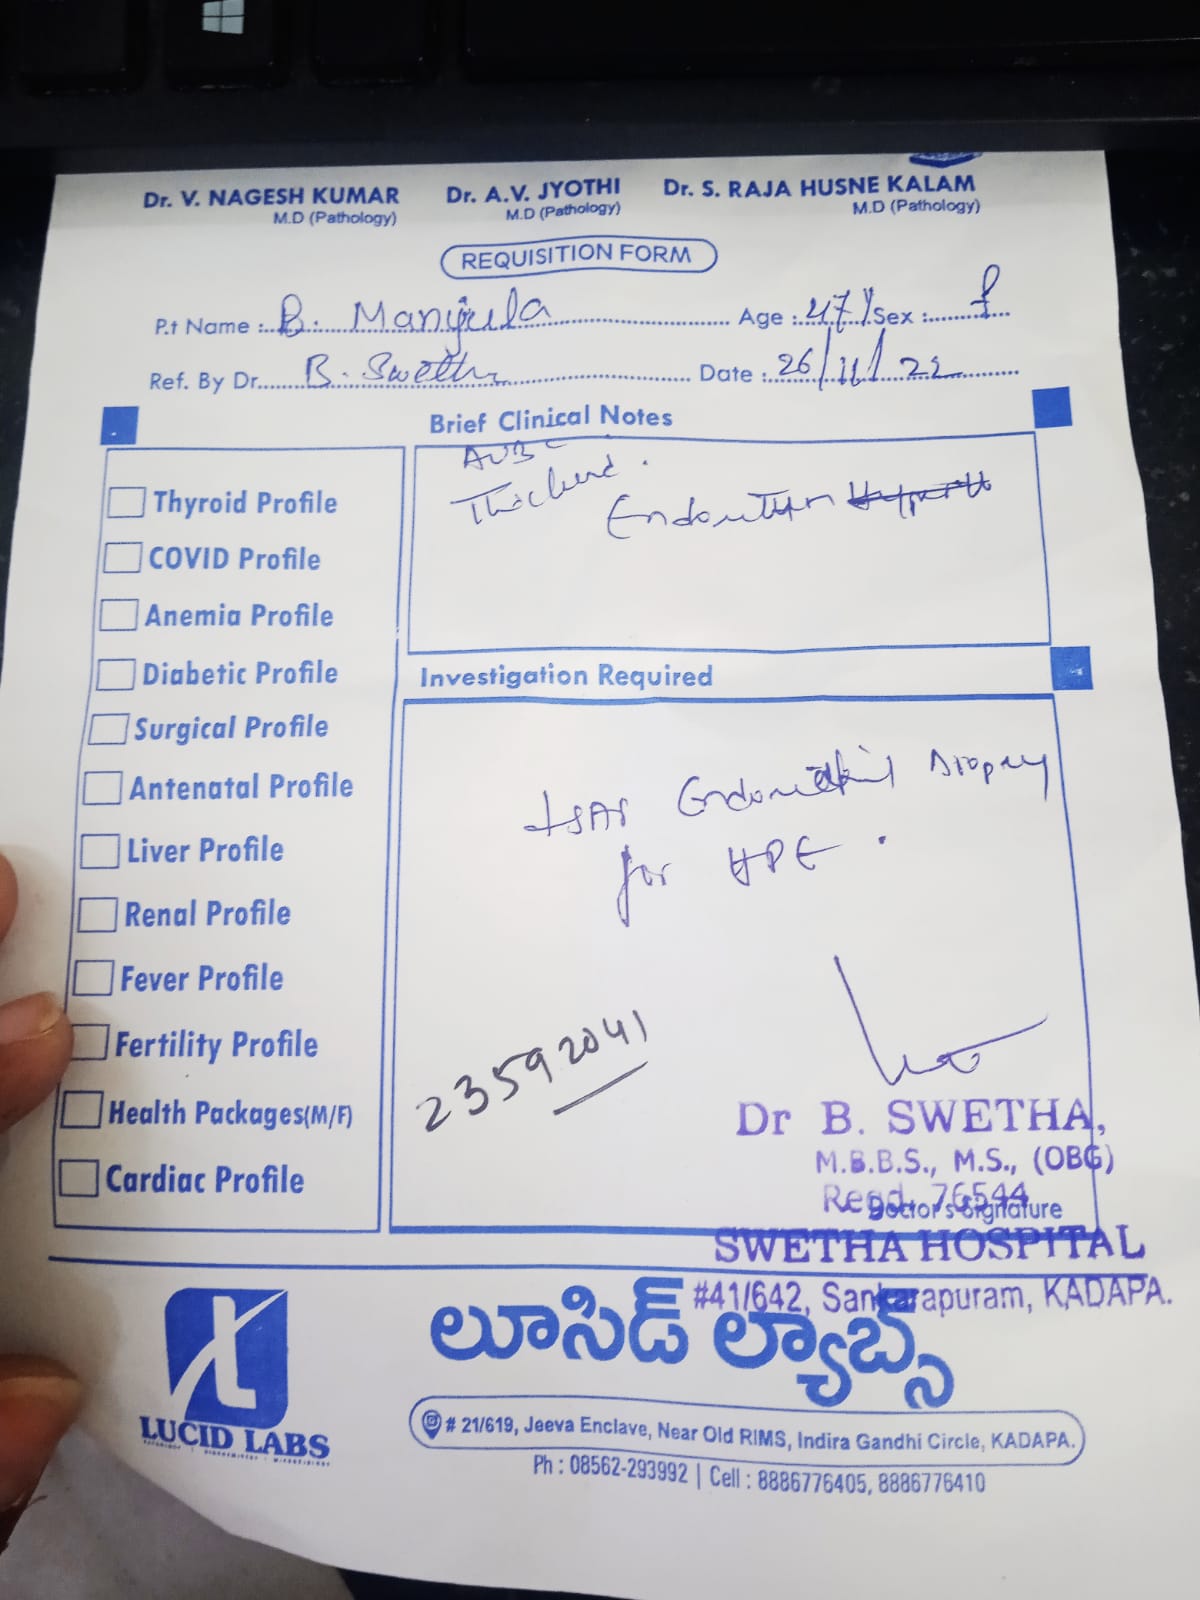 Dr. V. NAGESH KUMAR Dr. A.V. JYOTHI Dr. S. RAJA HUSNE KALAM
M.D (Pathology) M.D (Pathology) M.D (Pathology)
REQUISITION FORM
P.t Name : B. Manjula Age : 47 Sex : f
Ref. By Dr. B. Swetha Date : 26/11/22
Brief Clinical Notes
Thyroid Profile
COVID Profile
Anemia Profile
Diabetic Profile
Surgical Profile
Antenatal Profile
Liver Profile
Renal Profile
Fever Profile
Fertility Profile
Health Packages(M/F)
Cardiac Profile
Investigation Required
Endometrial Biopsy
for HPE.
23592041
Dr B. SWETHA,
M.B.B.S., M.S., (OBG)
Regd. 76544
Doctor's Signature
SWETHA HOSPITAL
#41/642, Sankarapuram, KADAPA.
లూసిడ్ ల్యాబ్స్
LUCID LABS
# 21/619, Jeeva Enclave, Near Old RIMS, Indira Gandhi Circle, KADAPA.
Ph : 08562-293992 | Cell : 8886776405, 8886776410